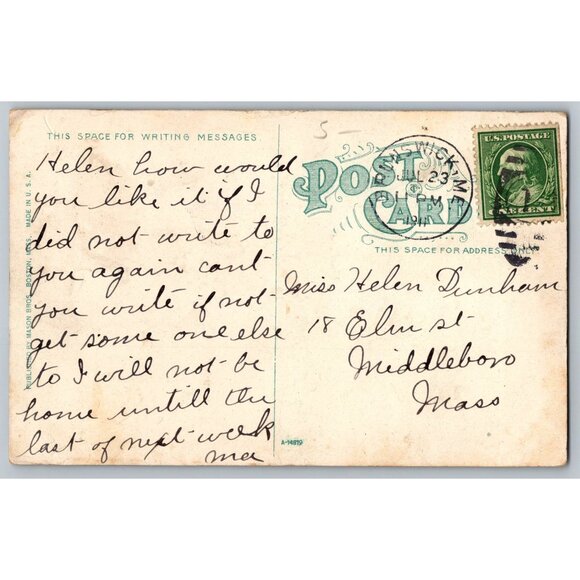 5-
THIS SPACE FOR WRITING MESSAGES.
Helen how would
you like it if I
did not write to
you again cant
you write if not
get some one else
to I will not be
home untill the
last of next week
ma
PUBLISHED BY MASON BROS., BOSTON, MASS. MADE IN U.S.A.
POST CARD
BRUNSWICK, ME.
JUL 23
PM
1911
U.S. POSTAGE
CENT
THIS SPACE FOR ADDRESS ONLY
Miss Helen Dunham
18 Elm st
Middleboro
Mass
A-14819